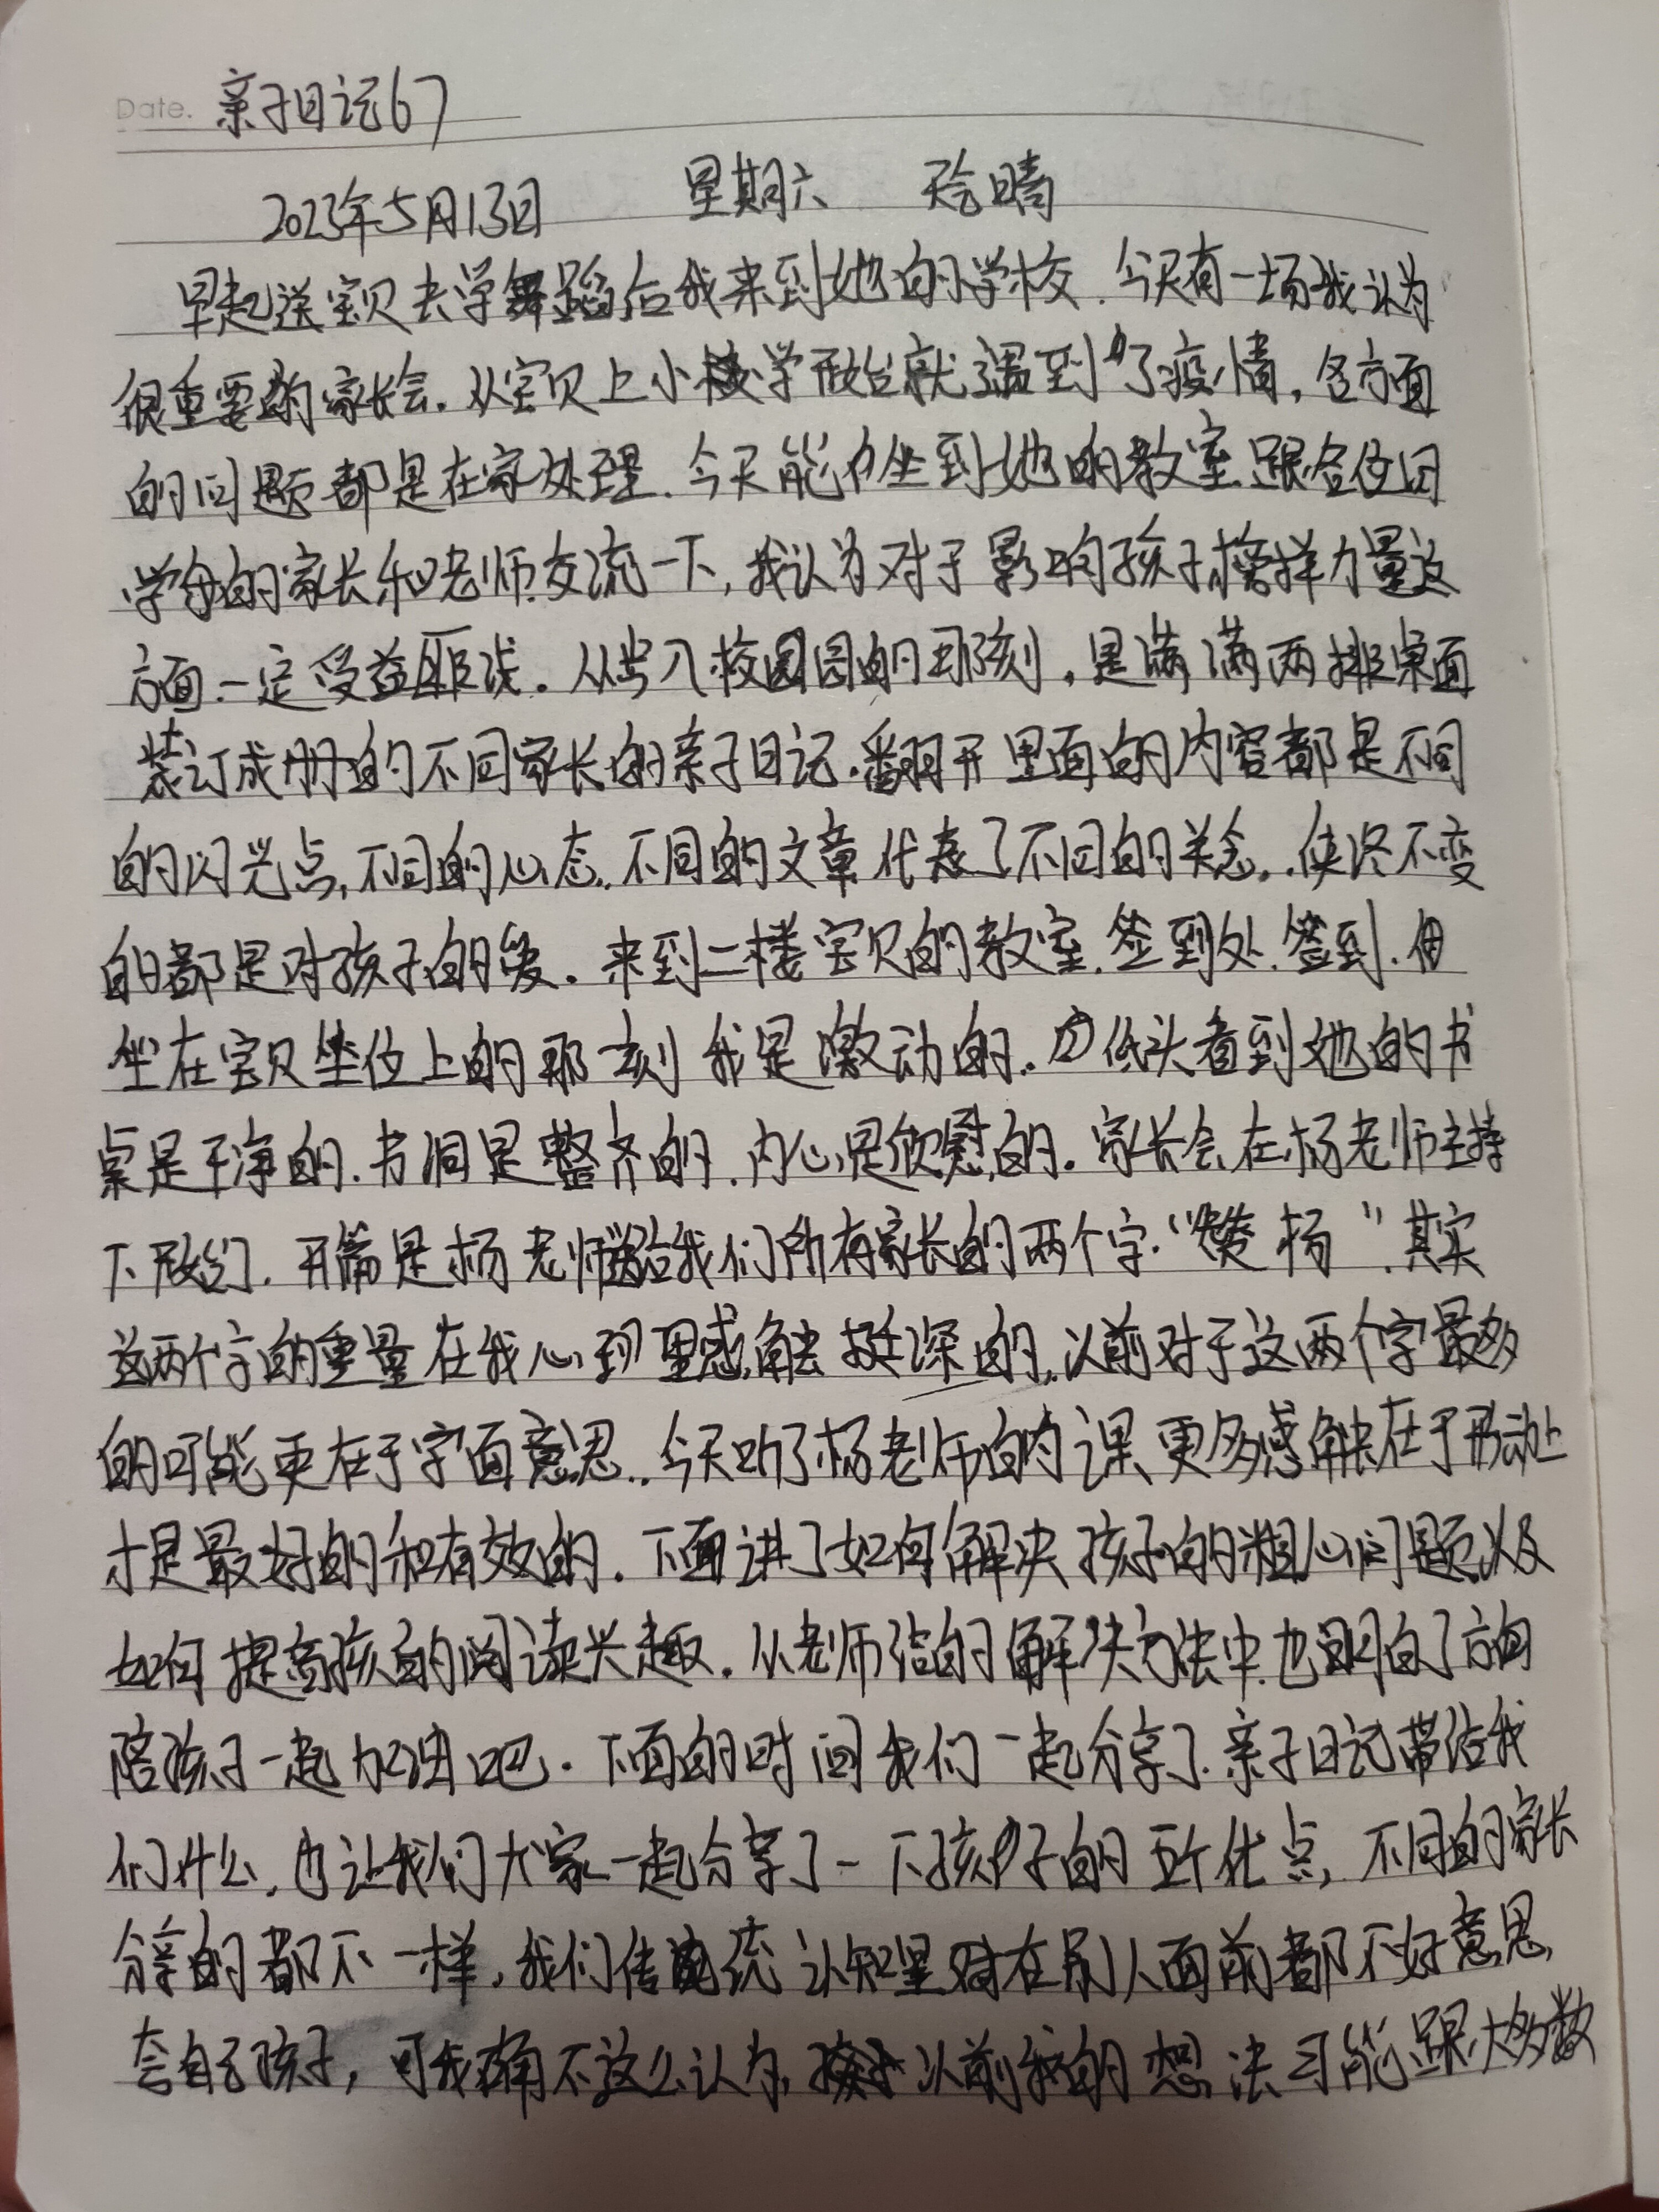 Date. 亲子日记67
2023年5月13日 星期六 天气晴
早起送宝贝去学舞蹈后我来到她的学校.今天有一场我认为
很重要的家长会.从宝贝上小学开始就遇到了疫情,各方面
的问题都是在家处理.今天能力坐到她的教室跟各位同
学的家长和老师交流一下,我认为对于影响孩子榜样力量这
方面一定受益匪浅.从步入校园的那刻,是满满两排桌面
装订成册的不同家长的亲子日记.翻开里面的内容都是不同
的闪光点,不同的心态.不同的文章代表了不同的关念..使终不变
的都是对孩子的爱.来到二楼宝贝的教室.签到处.签到.
坐在宝贝坐位上的那一刻我是激动的.低头看到她的书
桌是干净的.书洞是整齐的.内心是欣慰的.家长会在杨老师主持
下开始了.开篇是杨老师给我们所有家长的两个字."赞扬".其实
这两个字的重量在我心里感触挺深的.以前对于这两个字最多
的可能更在于字面意思..今天听了杨老师的课、更多感触在于行动上
才是最好的和有效的.下面讲了如何解决孩子的粗心问题以及
如何提高孩子的阅读兴趣.从老师给的解决方法中也明白了方向
陪孩子一起加油吧.下面的时间我们一起分享了.亲子日记带给我
们什么.也让我们大家一起分享了一下孩子的五个优点,不同的家长
分享的都不一样,我们传统认知里对在别人面前都不好意思
夸自己孩子,可我确不这么认为,以前我的想法可能跟大多数